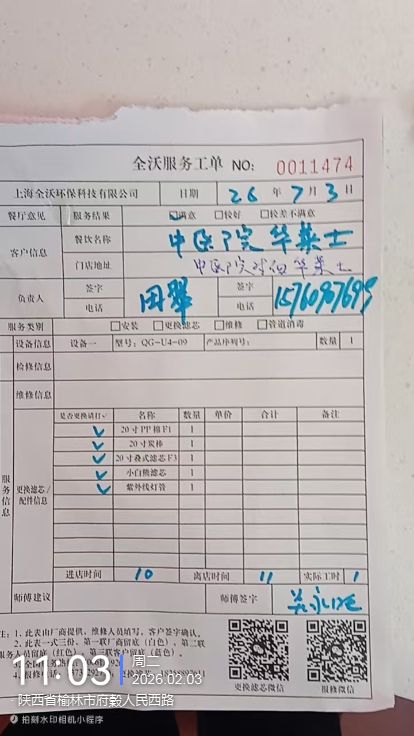 全沃服务工单 NO: 0011474
上海全沃环保科技有限公司 日期 26 年 7 月 3 日
餐厅意见 服务结果 ☑满意 □较好 □较差不满意
客户信息 餐饮名称 中医院 华莱士
门店地址 中医院对面华莱士
负责人 签字 田翠 签字
电话 电话
服务类别 □安装 □更换滤芯 □维修 □管道消毒
设备信息 设备一 型号: QG-U4-09 产品序列号: 数量 1
检修信息
维修信息
服务信息 更换滤芯/配件信息
是否更换请打✓ 名称 数量 单价 合计 备注
✓ 20寸PP棉F1 1
✓ 20寸炭棒 1
✓ 20寸叠式滤芯F3 1
✓ 小白熊滤芯 1
✓ 紫外线灯管 1
进店时间 10 离店时间 11 实际工时 1
师傅建议 师傅签字
注: 1、此表由厂商提供、维修人员填写、客户签字确认。
2、此表一式三份、第一联厂商留底(白色)、第二联
服务人员留底(红色)、第三联客户留底(蓝色)。
更换滤芯微信 报修微信
11:03 周二
2026.02.03
陕西省榆林市府谷人民西路
拍刻水印相机小程序